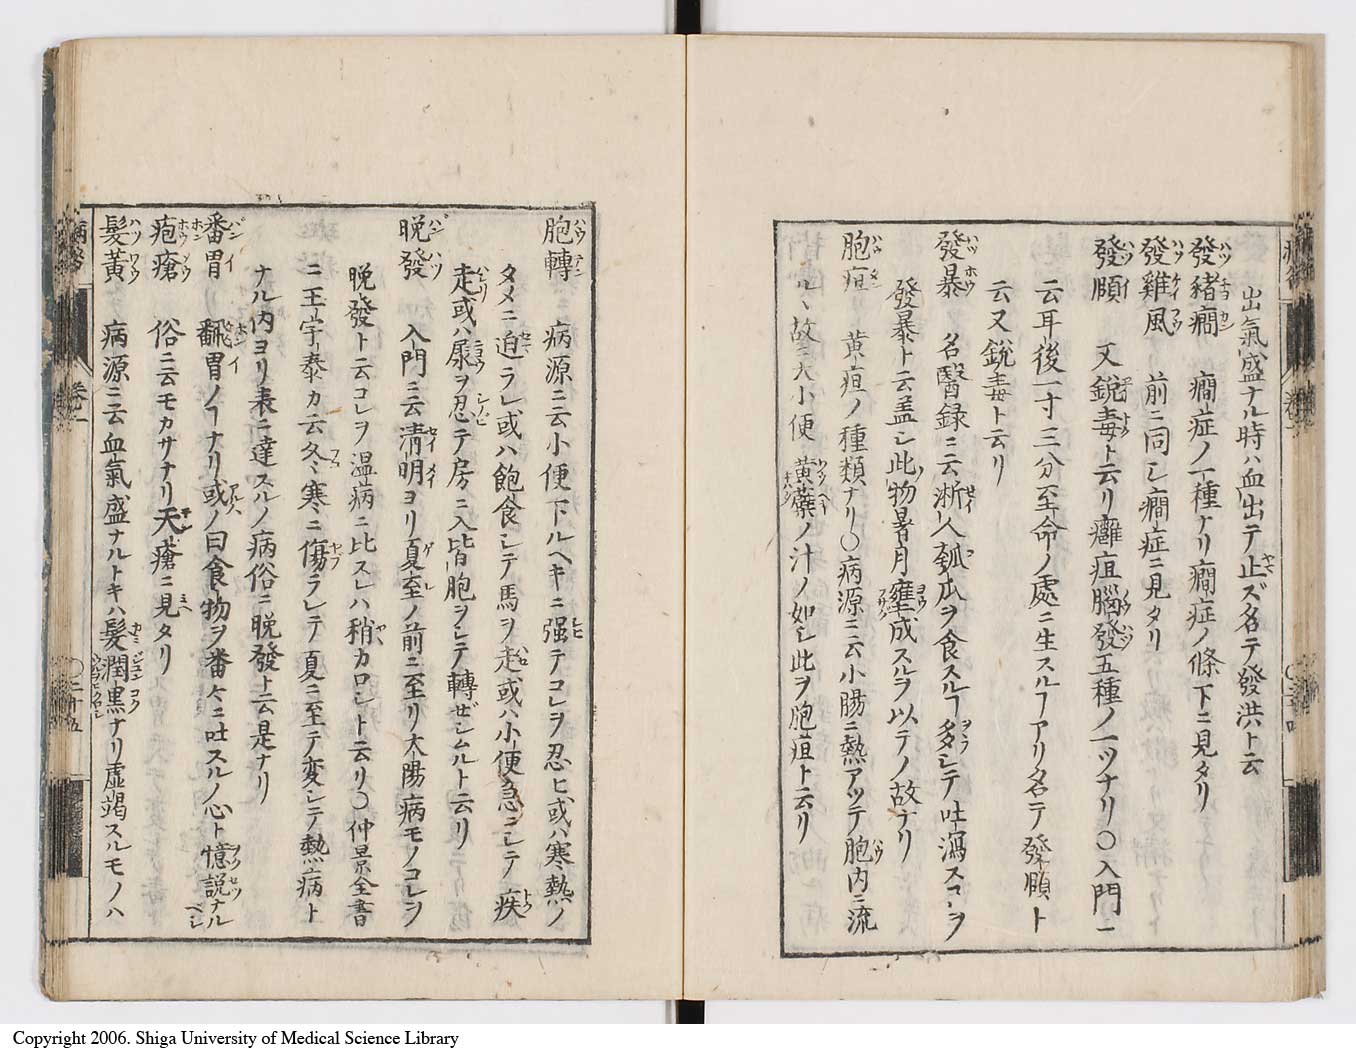 出氣盛ナル時ハ血出テ止ズ名テ發洪ト云
發豬癇 癇症ノ一種ナリ癇症ノ條下ニ見タリ
發雞風 前ニ同シ癇症ニ見タリ
發頤 又銳毒ト云リ癰疽腦發五種ノ一ツナリ〇入門ニ
云耳後一寸三分至命ノ處ニ生スルヿアリ名テ發頤ト
云又銳毒ト云リ
發暴 名醫録ニ云淅人瓠瓜ヲ食スルヿ多シテ吐瀉スコレヲ
發暴ト云盖シ此物暑月壅成スルヲ以テノ故ナリ
胞疸 黄疸ノ種類ナリ〇病源ニ云小腸ニ熱アツテ胞内ニ流
ルヽ故ニ大小便黄蘗ノ汁ノ如シ此ヲ胞疸ト云リ
胞轉 病源ニ云小便下ルヘキニ强テコレヲ忍ヒ或ハ寒熱ノ
タメニ迫ラレ或ハ飽食シテ馬ヲ走或ハ小便急ニシテ疾
走或ハ尿ヲ忍テ房ニ入皆胞ヲシテ轉ゼシムルト云リ
晩發 入門ニ云清明ヨリ夏至ノ前ニ至リ太陽病モノコレヲ
晩發ト云コレヲ温病ニ比スレハ稍カロシト云リ〇仲景全書
ニ王宇泰カ云冬寒ニ傷ラレテ夏ニ至テ変シテ熱病ト
ナル内ヨリ表ニ達スルノ病俗ニ晩發ト云是ナリ
番胃 飜胃ノヿナリ或ノ曰食物ヲ番々ニ吐スルノ心ト憶説ナルベシ
疱瘡 俗ニ云モカサナリ天瘡ニ見タリ
髮黄 病源ニ云血氣盛ナルトキハ髮潤黒ナリ虚竭スルモノハ
Copyright 2006. Shiga University of Medical Science Library